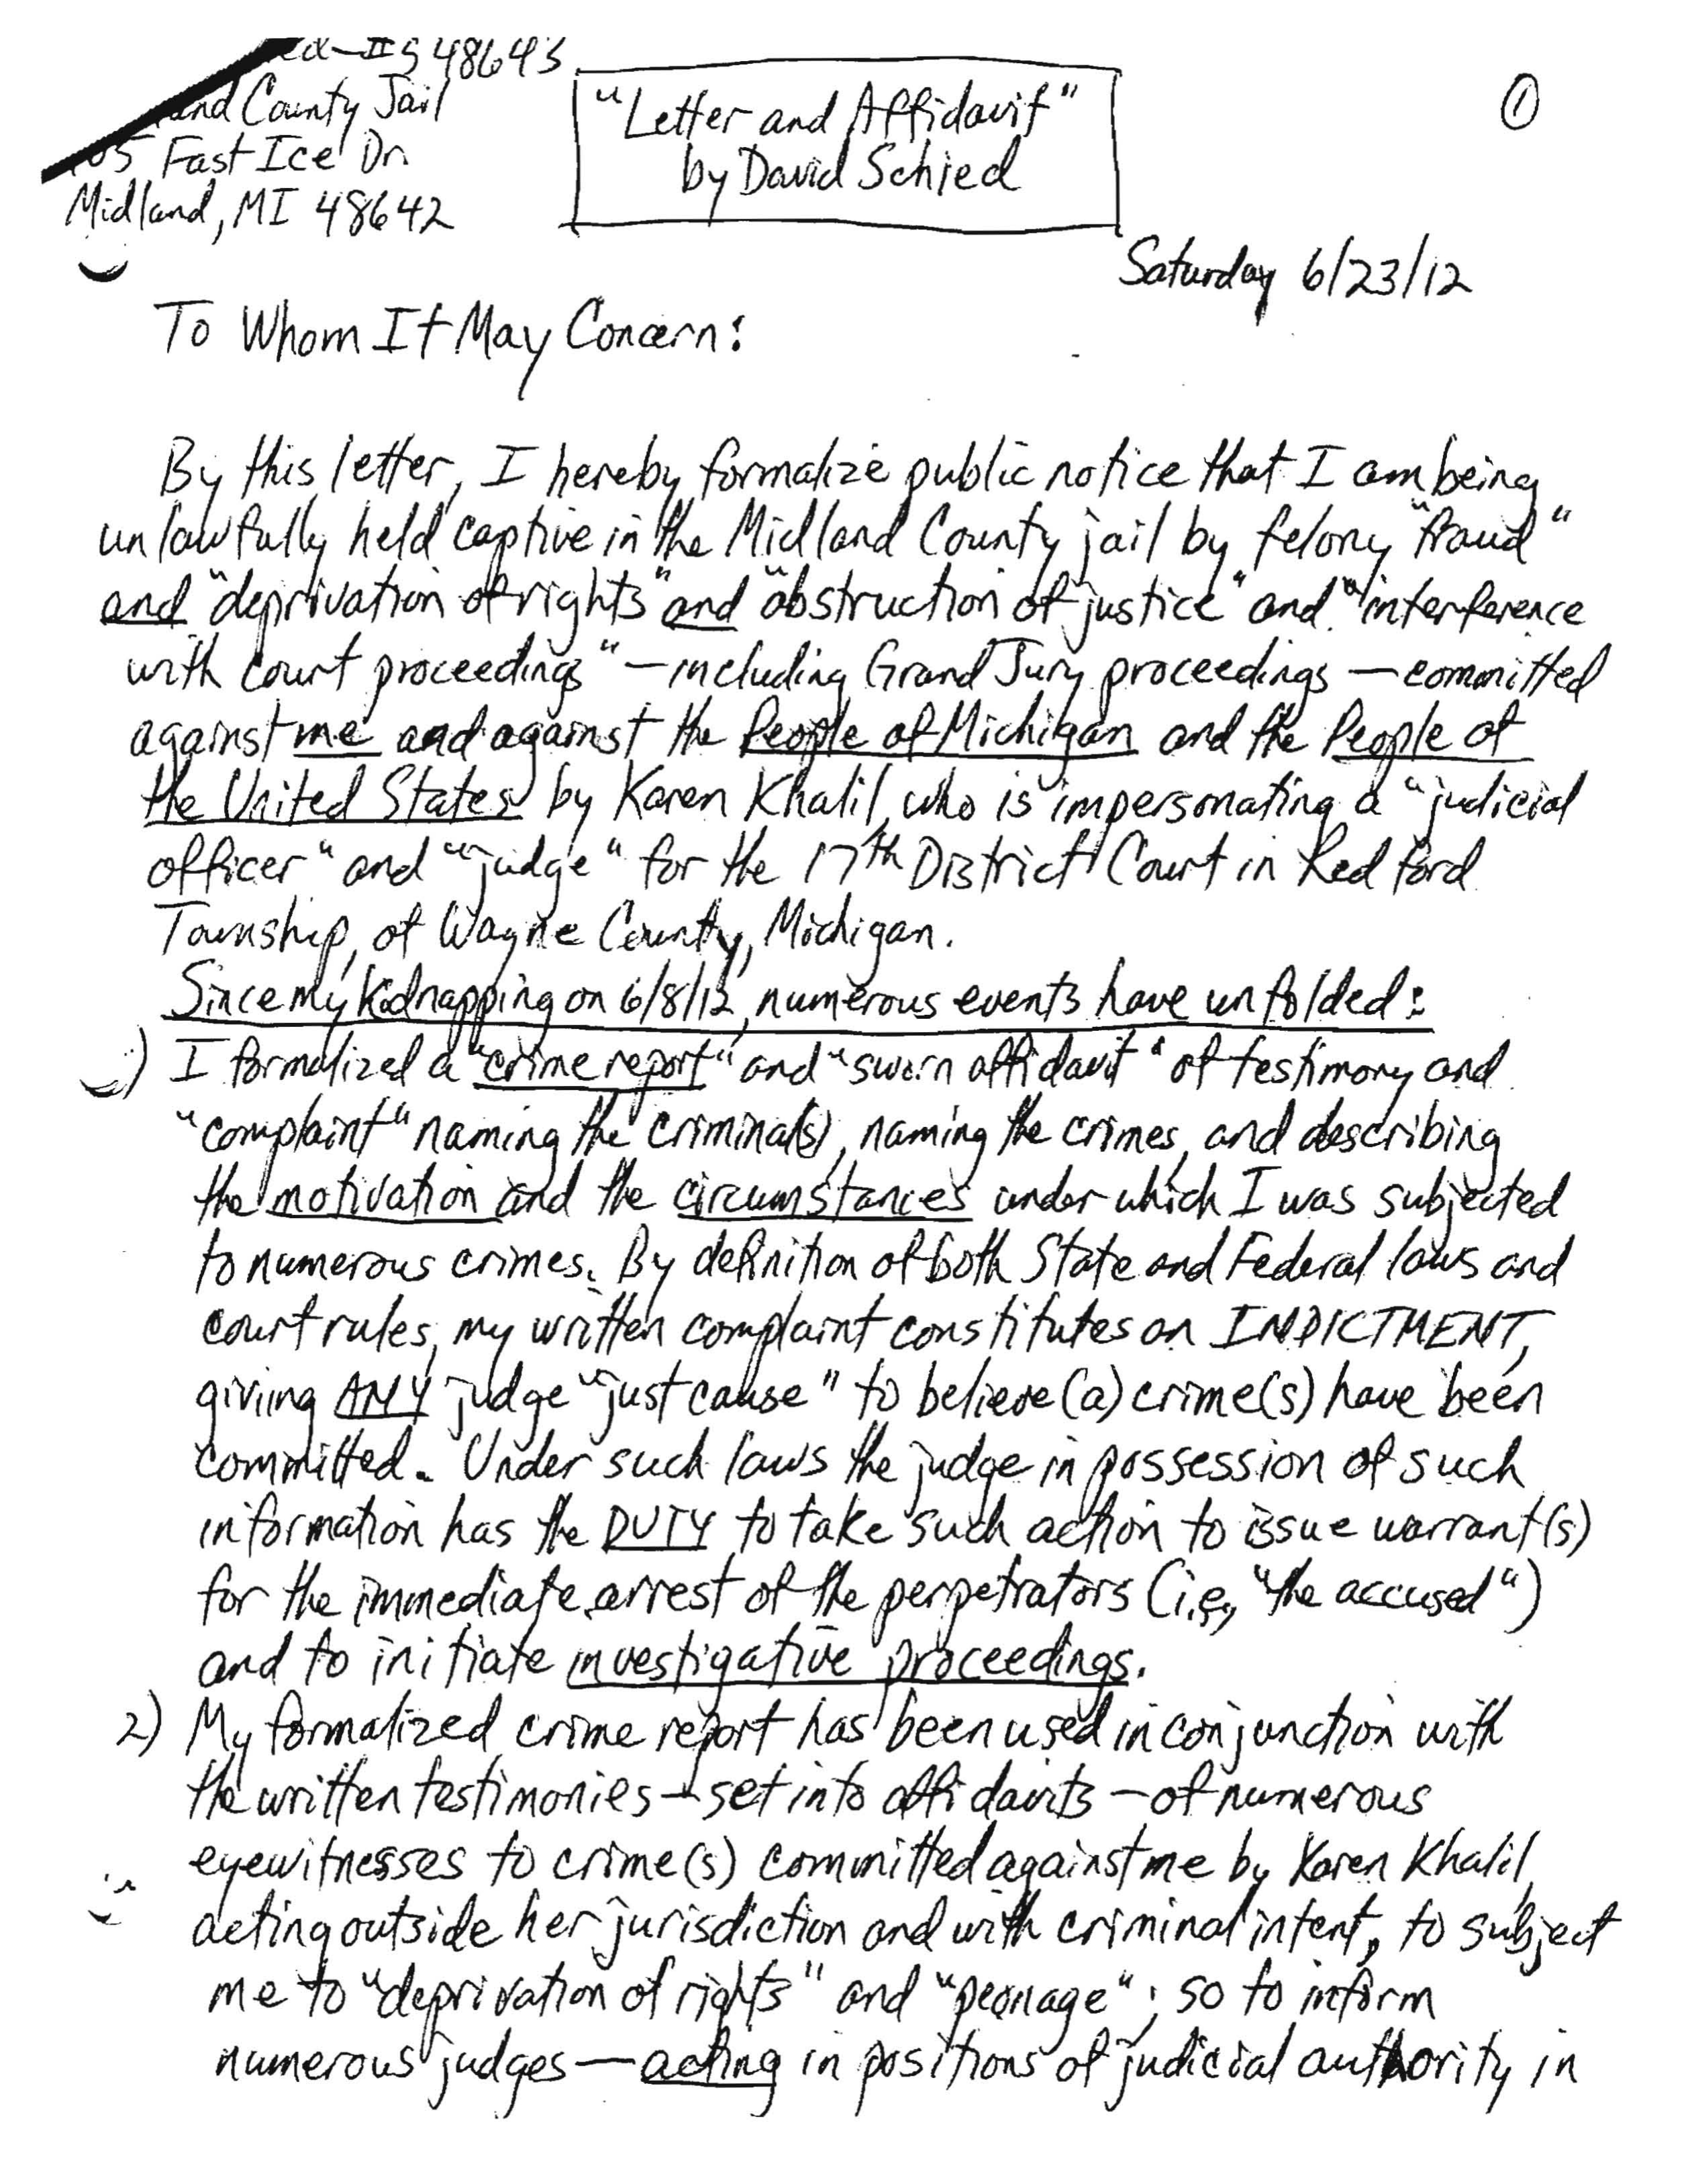 ed-IIS 48643
and County Jail
05 Fast Ice Dr.
Midland, MI 48642
"Letter and Affidavit"
by David Schied
①
Saturday 6/23/12
To Whom It May Concern:
By this letter, I hereby formalize public notice that I am being
unlawfully held captive in the Midland County jail by felony "fraud"
and "deprivation of rights" and "obstruction of justice" and "interference
with court proceedings" — including Grand Jury proceedings — committed
against me and against the People of Michigan and the People of
the United States by Karen Khalil, who is impersonating a "judicial
officer" and "judge" for the 17th District Court in Redford
Township, of Wayne County, Michigan.
Since my kidnapping on 6/8/12, numerous events have unfolded:
) I formalized a "crime report" and "sworn affidavit" of testimony and
"complaint" naming the criminal(s), naming the crimes, and describing
the motivation and the circumstances under which I was subjected
to numerous crimes. By definition of both State and Federal laws and
court rules, my written complaint constitutes an INDICTMENT,
giving ANY judge "just cause" to believe (a) crime(s) have been
committed. Under such laws the judge in possession of such
information has the DUTY to take such action to issue warrant(s)
for the immediate arrest of the perpetrators (i.e., "the accused")
and to initiate investigative proceedings.
2) My formalized crime report has been used in conjunction with
the written testimonies — set into affidavits — of numerous
eyewitnesses to crime(s) committed against me by Karen Khalil,
acting outside her jurisdiction and with criminal intent, to subject
me to "deprivation of rights" and "peonage"; so to inform
numerous judges — acting in positions of judicial authority in